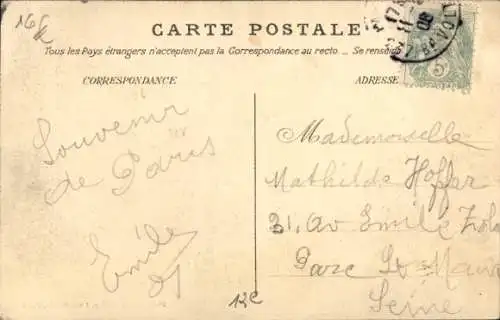 16
CARTE POSTALE
Tous les Pays étrangers n'acceptent pas la Correspondance au recto... Se renseig
CORRESPONDANCE
ADRESSE
Souvenir
de Paris
Emile
Mademoiselle
Mathilde Hoffer
31. Av Emile Zola
Parc St Maur
Seine